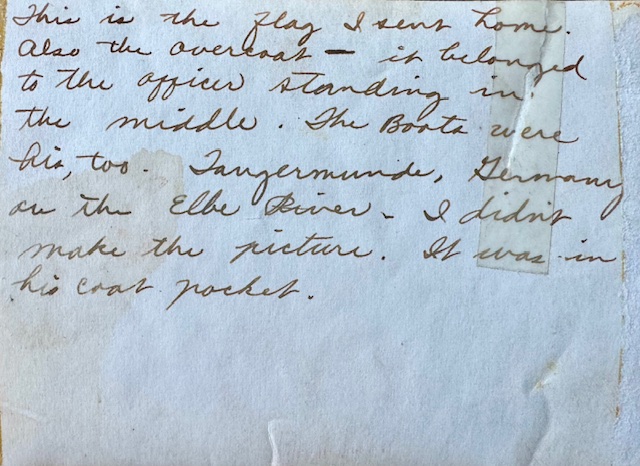 This is the flag I sent home.
Also the overcoat — it belonged
to the officer standing in
the middle. The Boots were
his, too. Tangermunde, Germany
on the Elbe River - I didn't
make the picture. It was in
his coat pocket.